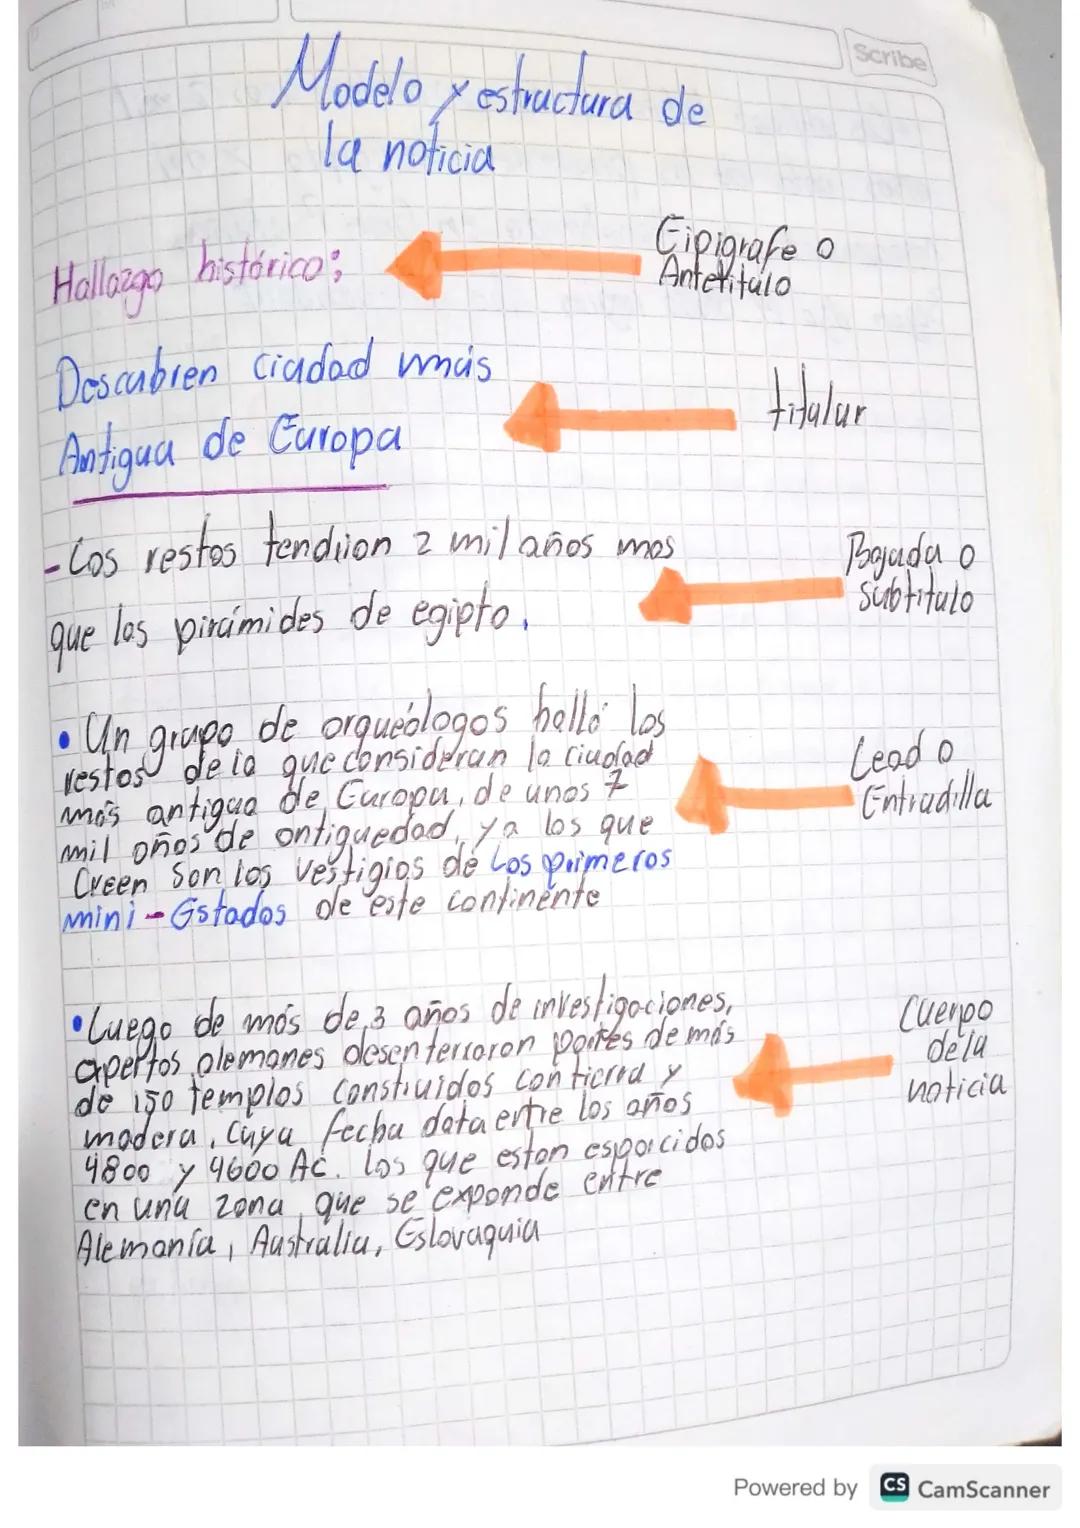 Scribe
Modelo y estructura de
la noticia
Hallazgo histórico:
Eipigrafe o
Antetitulo
Descubren ciudad más
Antigua de Europa
titular
- Los restos tendrion 2 mil años mas
que las pirámides de egipto.
Bajada o
subtitulo
• Un grupo de arqueólogos halló los
restos de la que consideran la ciudad
más antigua de Europa, de unos 7
mil años de antiguedad, ya los que
Creen Son los vestigios de Los primeros
mini-Estados de este continente
Lead o
Entradilla
• Luego de más de 3 años de investigaciones,
apertos alemanes desenterraron partes de más
de 150 templos Construidos con tierra y
madera, Cuya fecha data entre los años
4800 y 4600 AC. los que estan esparcidos
en una zona que se exponde entre
Alemania, Australia, Eslovaquia
Cuerpo
de la
noticia
Powered by CS CamScanner